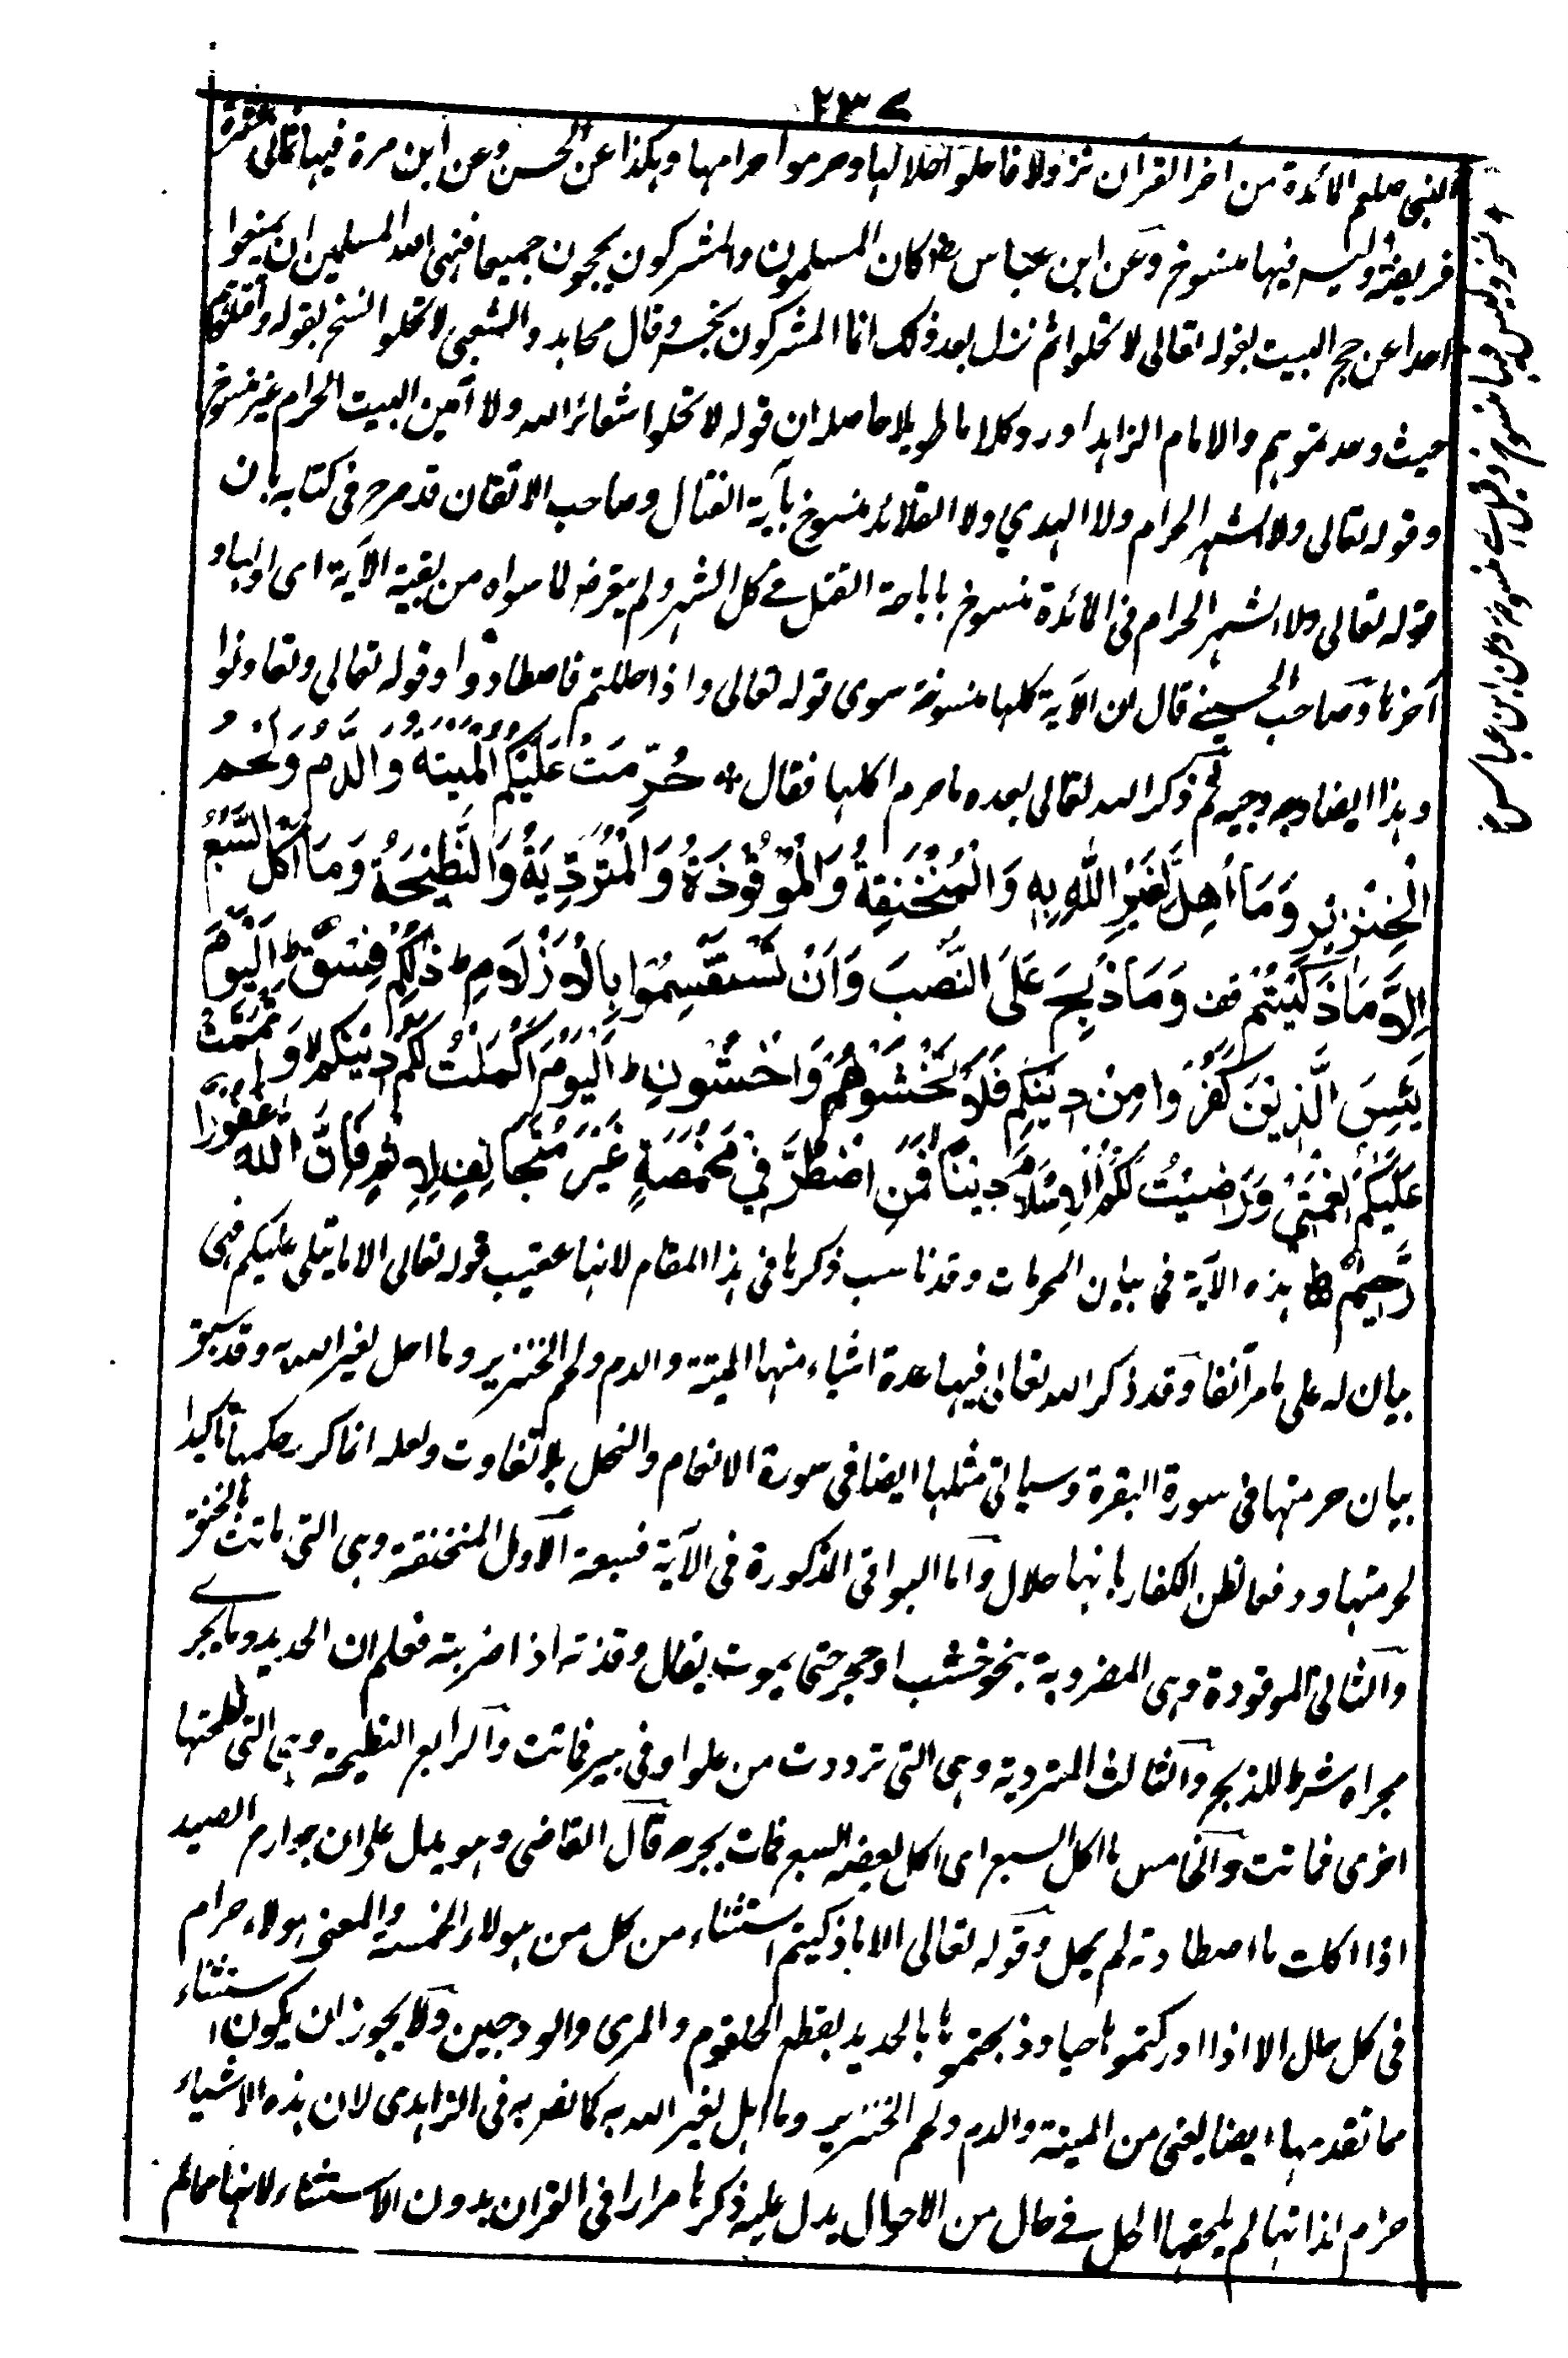 ٢٣٧
النبي صلعم المائدة من آخر القرآن نزولا فاحلوا حلالها وحرموا حرامها وهكذا عن الحسن وعن ابن مرة فيها ثماني عشرة
فريضة وليس فيها منسوخ وعن ابن عباس رض كان المسلمون والمشركون يحجون جميعا فنهى الله المسلمين ان يمنعوا
احدا عن حج البيت بقوله تعالى لا تحلوا ثم نزل بعد ذلك انما المشركون نجس وقال مجاهد والشعبي لا تحلوا النسخ بقوله واقتلوهم
حيث وجدتموهم والامام الزاهد اورد كلاما طويلا حاصله ان قوله لا تحلوا شعائر الله ولا آمين البيت الحرام غير منسوخ
وقوله تعالى ولا الشهر الحرام ولا الهدي ولا القلائد منسوخ بآية القتال وصاحب الاتقان قد صرح في كتابه بان
قوله تعالى ولا الشهر الحرام في المائدة منسوخ باباحة القتل في كل الشهر ولم يتعرض لما سواه من بقية الآية اى اولها و
آخرها وصاحب الحسيني قال ان الآية كلها منسوخة سوى قوله تعالى واذا حللتم فاصطادوا وقوله تعالى وتعاونوا
وهذا ايضا وجه وجيه ثم ذكر الله تعالى بعده ما حرم اكلها فقال * حُرِّمَتْ عَلَيْكُمُ الْمَيْتَةُ وَالدَّمُ وَلَحْمُ
الْخِنْزِيْرِ وَمَا أُهِلَّ لِغَيْرِ اللّٰهِ بِهٖ وَالْمُنْخَنِقَةُ وَالْمَوْقُوْذَةُ وَالْمُتَرَدِّيَةُ وَالنَّطِيْحَةُ وَمَا اَكَلَ السَّبُعُ
اِلَّا مَا ذَكَّيْتُمْ قف وَمَا ذُبِحَ عَلَى النُّصُبِ وَاَنْ تَسْتَقْسِمُوْا بِالْاَزْلَامِ ط ذٰلِكُمْ فِسْقٌ ط اَلْيَوْمَ
يَئِسَ الَّذِيْنَ كَفَرُوْا مِنْ دِيْنِكُمْ فَلَا تَخْشَوْهُمْ وَاخْشَوْنِ ط اَلْيَوْمَ اَكْمَلْتُ لَكُمْ دِيْنَكُمْ وَاَتْمَمْتُ
عَلَيْكُمْ نِعْمَتِيْ وَرَضِيْتُ لَكُمُ الْاِسْلَامَ دِيْنًا ط فَمَنِ اضْطُرَّ فِيْ مَخْمَصَةٍ غَيْرَ مُتَجَانِفٍ لِاِثْمٍ فَاِنَّ اللّٰهَ غَفُوْرٌ
رَّحِيْمٌ ط هذه الآية في بيان المحرمات وقد ناسب ذكرها في هذا المقام لانها عقيب قوله تعالى الا ما يتلى عليكم فهي
بيان له على ما مر آنفا وقد ذكر الله تعالى فيها عدة اشياء منها الميتة والدم ولحم الخنزير وما اهل لغير الله به وقد سبق
بيان حرمتها في سورة البقرة وسياتي مثلها ايضا في سورة الانعام والنحل بلا تفاوت ولعله انما كرر حكمها تاكيدا
لحرمتها ودفعا لظن الكفار بانها حلال واما البواقي المذكورة في الآية فسبعة الاول المنخنقة وهي التي ماتت بالخنق
والثاني الموقوذة وهى المضروبة بنحو خشب او حجر حتى يموت يقال وقذته اذا ضربته فعلم ان الحديد وما يجرى
مجراه شرط للذبح والثالث المتردية وهى التي ترددت من علو او في بير فماتت والرابع النطيحة وهى التي نطحتها
اخرى فماتت والخامس ما اكل السبع اى اكل بعضه السبع فمات بجرحه قال القاضي وهو يدل على ان جوارح الصيد
اذا اكلت ما اصطادته لم يحل وقوله تعالى الا ما ذكيتم استثناء من كل من هولاء الخمسة والمعنى هولاء حرام
في كل حال الا اذا ادركتموها حيا وذبحتموها بالحديد بقطع الحلقوم والمرى والودجين ولا يجوز ان يكون استثناء
مما تقدمها ايضا يعني من الميتة والدم ولحم الخنزير وما اهل لغير الله به كما نص به في الزاهدى لان هذه الاشياء
حرام لذاتها لم يلحقها الحل في حال من الاحوال يدل عليه ذكرها مرارا في القرآن بدون الاستثناء لانها مما لم